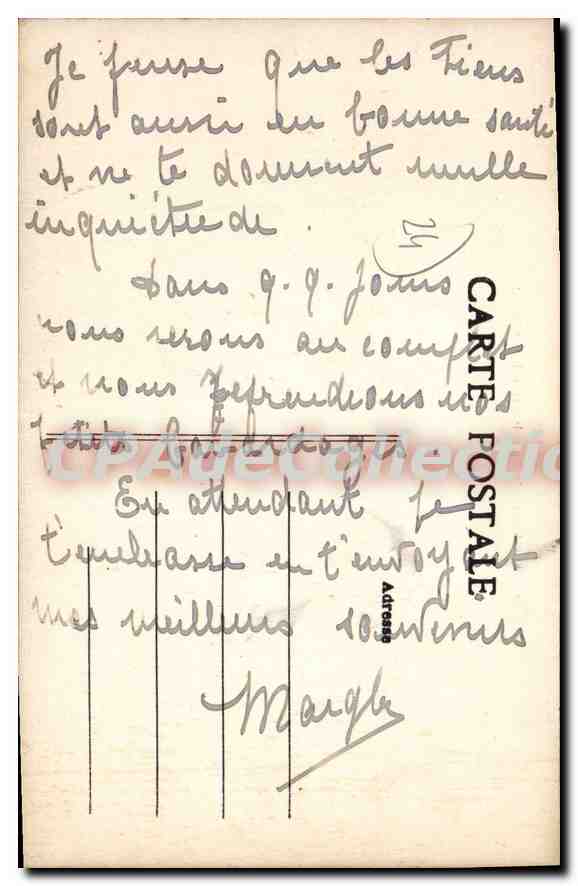 Je pense que les Tiens
sont aussi en bonne santé
et ne te donnent nulle
inquiétude.
24
Dans q.q. jours
nous serons au complet
et nous reprendrons nos
petits bavardages.
En attendant je
t'embrasse en t'envoyant
mes meilleurs souvenirs
CARTE POSTALE
Adresse
CPAdeCollection.com